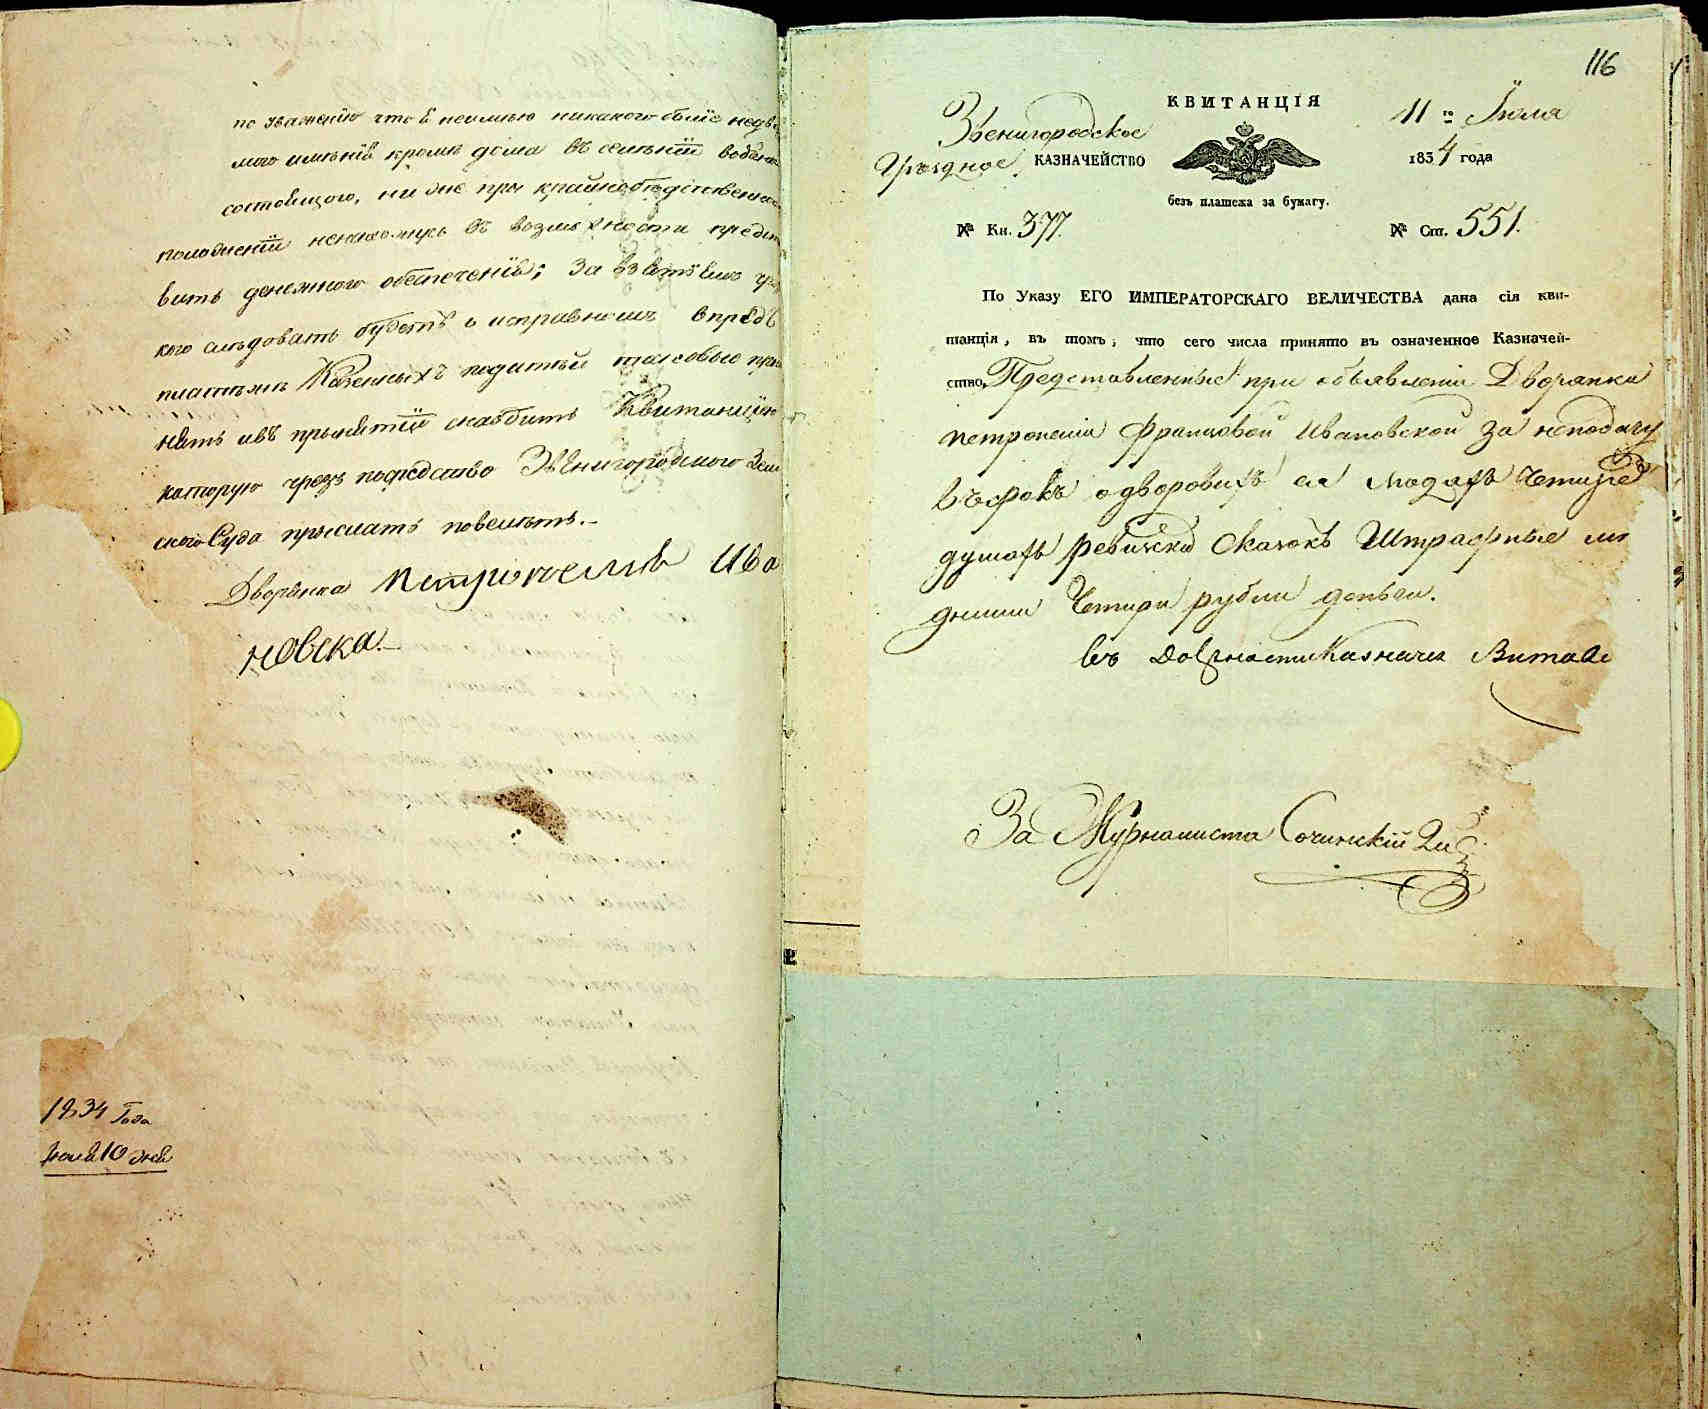 по уваженію что я неимѣю никакого болѣе недви
маго имѣнія кромѣ дома въ селѣнии
состоящаго, ниже при крайнобѣдственном
положеніи ненахожусь въ возможности предста
вить денежнаго обеспеченія; За
кого слѣдовать будетъ о исправномъ впредь
платежѣ Казенныхъ податей таковые прин
нять и въ принятіи снабдить Квитанціею
которую чрезъ посредство Звенигородского Зем
ского Суда прислать повелѣть.
Дворянка Петронеля Ива
новска.
1834 Года
Іюля 10 дня
116
КВИТАНЦІЯ
Звенигородское 11го Іюля
Уѣздное КАЗНАЧЕЙСТВО 1834 года
безъ платежа за бумагу.
№ Кн. 377. № Ст. 551.
По Указу ЕГО ИМПЕРАТОРСКАГО ВЕЛИЧЕСТВА дана сія кви-
танція, въ томъ, что сего числа принято въ означенное Казначей-
ство, Представленные при объявленіи Дворянки
Петронеліи Францовой Ивановской за неподачу
въ срокъ одворовихъ ея людяхъ Четирѣ
душахъ ревизскихъ Сказокъ Штрафние
Четири рубли деньги.
въ Должности Казначея
За Журналиста Сочинскій